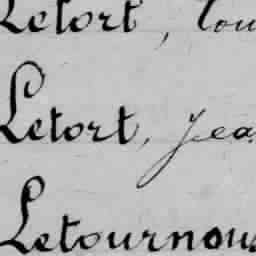 Letort, Lou
Letort, Jea
Letournous